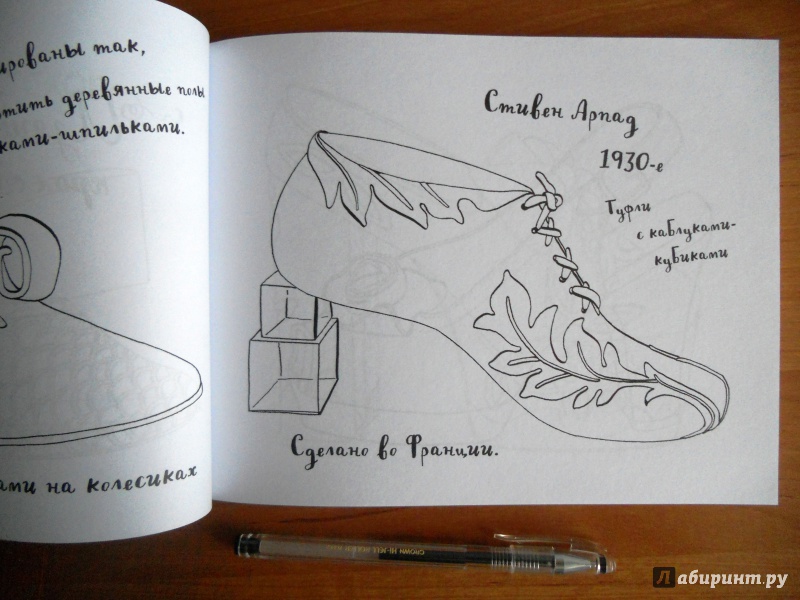 ированы так,
тить деревянные полы
ками-шпильками.
ами на колесиках
Стивен Арпад
1930-е
Туфли
с каблуками-
кубиками
Сделано во Франции.
CROWN HI-JELL
Лабиринт.ру